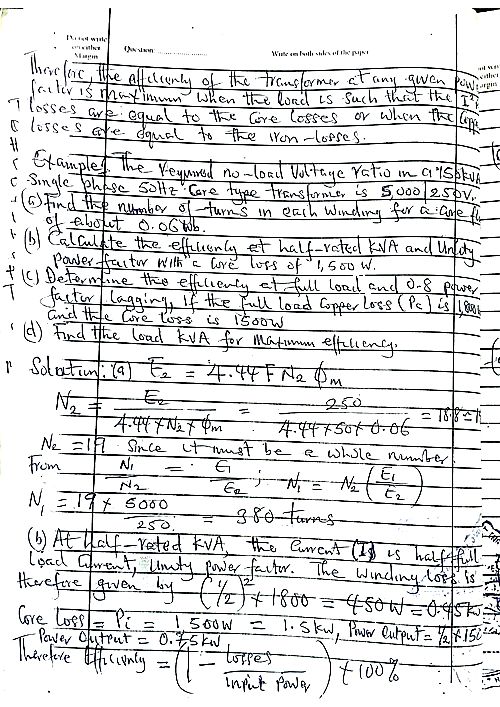 Do not write
on either
Margin
Question:
Write on both sides of the paper
Therefore, the efficiency of the transformer at any given power
factor is maximum when the load is such that the I²r
losses are equal to the Core losses or when the Copp
losses are equal to the iron-losses.
Example: The required no-load Voltage ratio in a 150KVA
Single phase 50Hz Core type transformer is 5,000/250V.
(a) Find the number of turns in each winding for a core fl
of about 0.06Wb.
(b) Calculate the efficiency at half-rated KVA and Unity
power factor with a Core loss of 1,500W.
(c) Determine the efficiency at full load and 0.8 power
factor lagging, if the full load Copper loss (Pc) is 1,800W
and the Core loss is 1500W
(d) Find the load KVA for Maximum efficiency.
Solution: (a) E₂ = 4.44 F N₂ Φm
N₂ = E₂ / 4.44 × N₂ × Φm = 250 / 4.44 × 50 × 0.06 = 18.8 = 1
N₂ = 19 Since it must be a whole number.
From N₁/N₂ = E₁/E₂ ; N₁ = N₂ (E₁/E₂)
N₁ = 19 × 5000 / 250 = 380 turns
(b) At half-rated KVA, the Current (I) is half-full
load Current, Unity power factor. The winding loss is
therefore given by (1/2)² × 1800 = 450W = 0.45K
Core Loss = Pi = 1,500W = 1.5kw, Power output = ½ × 150
Power Output = 0.75kw
Therefore Efficiency = (1 - losses / input Power) × 100%